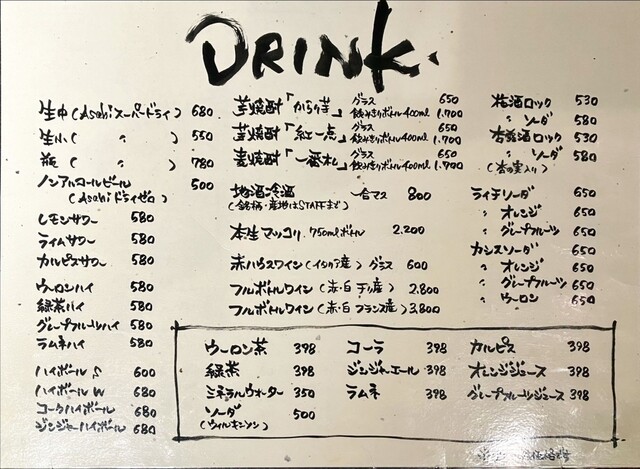 DRINK.
生中(Asahi スーパードライ) 680
生小( 〃 ) 550
瓶( 〃 ) 780
ノンアルコールビール 500
(Asahi ドライゼロ)
レモンサワー 580
ライムサワー 580
カルピスサワー 580
ウーロンハイ 580
緑茶ハイ 580
グレープフルーツハイ 580
ラムネハイ 580
ハイボール S 600
ハイボール W 680
コークハイボール 680
ジンジャーハイボール 680
芋焼酎「からり芋」 グラス 650
飲みきりボトル400ml 1,700
芋焼酎「紅一点」 グラス 650
飲みきりボトル400ml 1,700
麦焼酎「一番札」 グラス 650
飲みきりボトル400ml 1,700
地酒冷酒 一合マス 800
(銘柄・産地はSTAFFまで)
本生マッコリ 750mlボトル 2.200
赤ハウスワイン(イタリア産) グラス 600
フルボトルワイン(赤・白 チリ産) 2.800
フルボトルワイン(赤・白 フランス産) 3,800
梅酒ロック 530
〃 ソーダ 580
杏露酒ロック 530
〃 ソーダ 580
(杏の実入り)
ライチソーダ 650
〃 オレンジ 650
〃 グレープフルーツ 650
カシスソーダ 650
〃 オレンジ 650
〃 グレープフルーツ 650
〃 ウーロン 650
ウーロン茶 398
緑茶 398
ミネラルウォーター 350
ソーダ 500
(ウィルキンソン)
コーラ 398
ジンジャエール 398
ラムネ 398
カルピス 398
オレンジジュース 398
グレープフルーツジュース 398